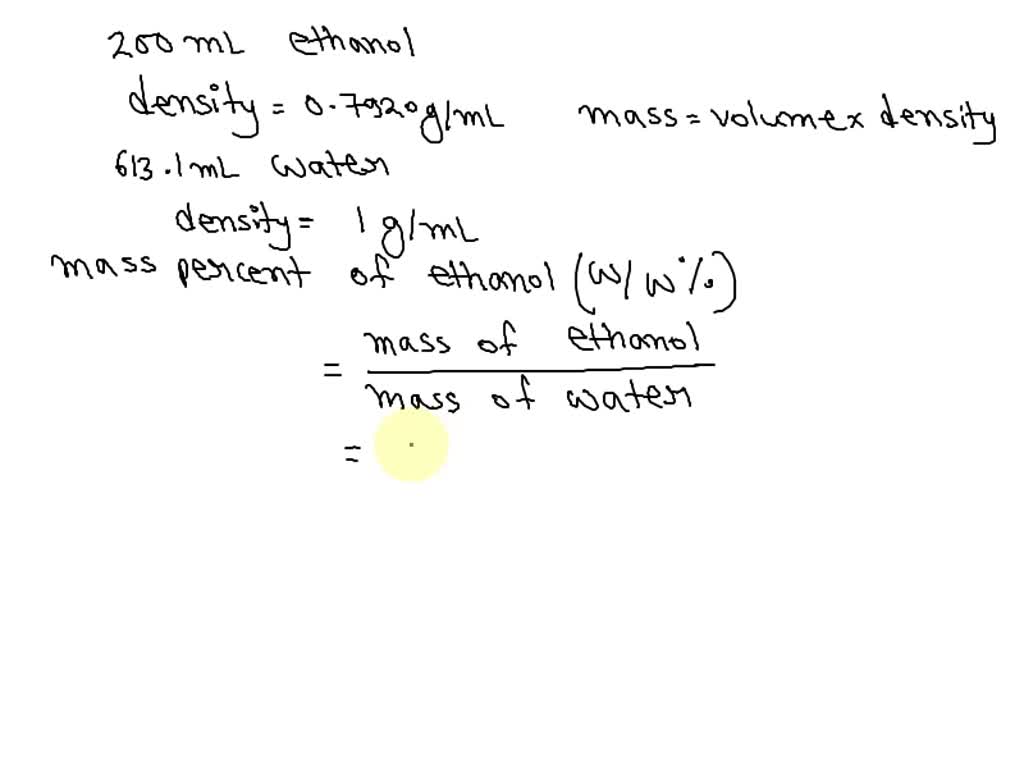 200 mL ethanol
density = 0.7920 g/mL mass = volume x density
613.1 mL water
density = 1 g/mL
mass percent of ethanol (w/w%)
= mass of ethanol / mass of water
=